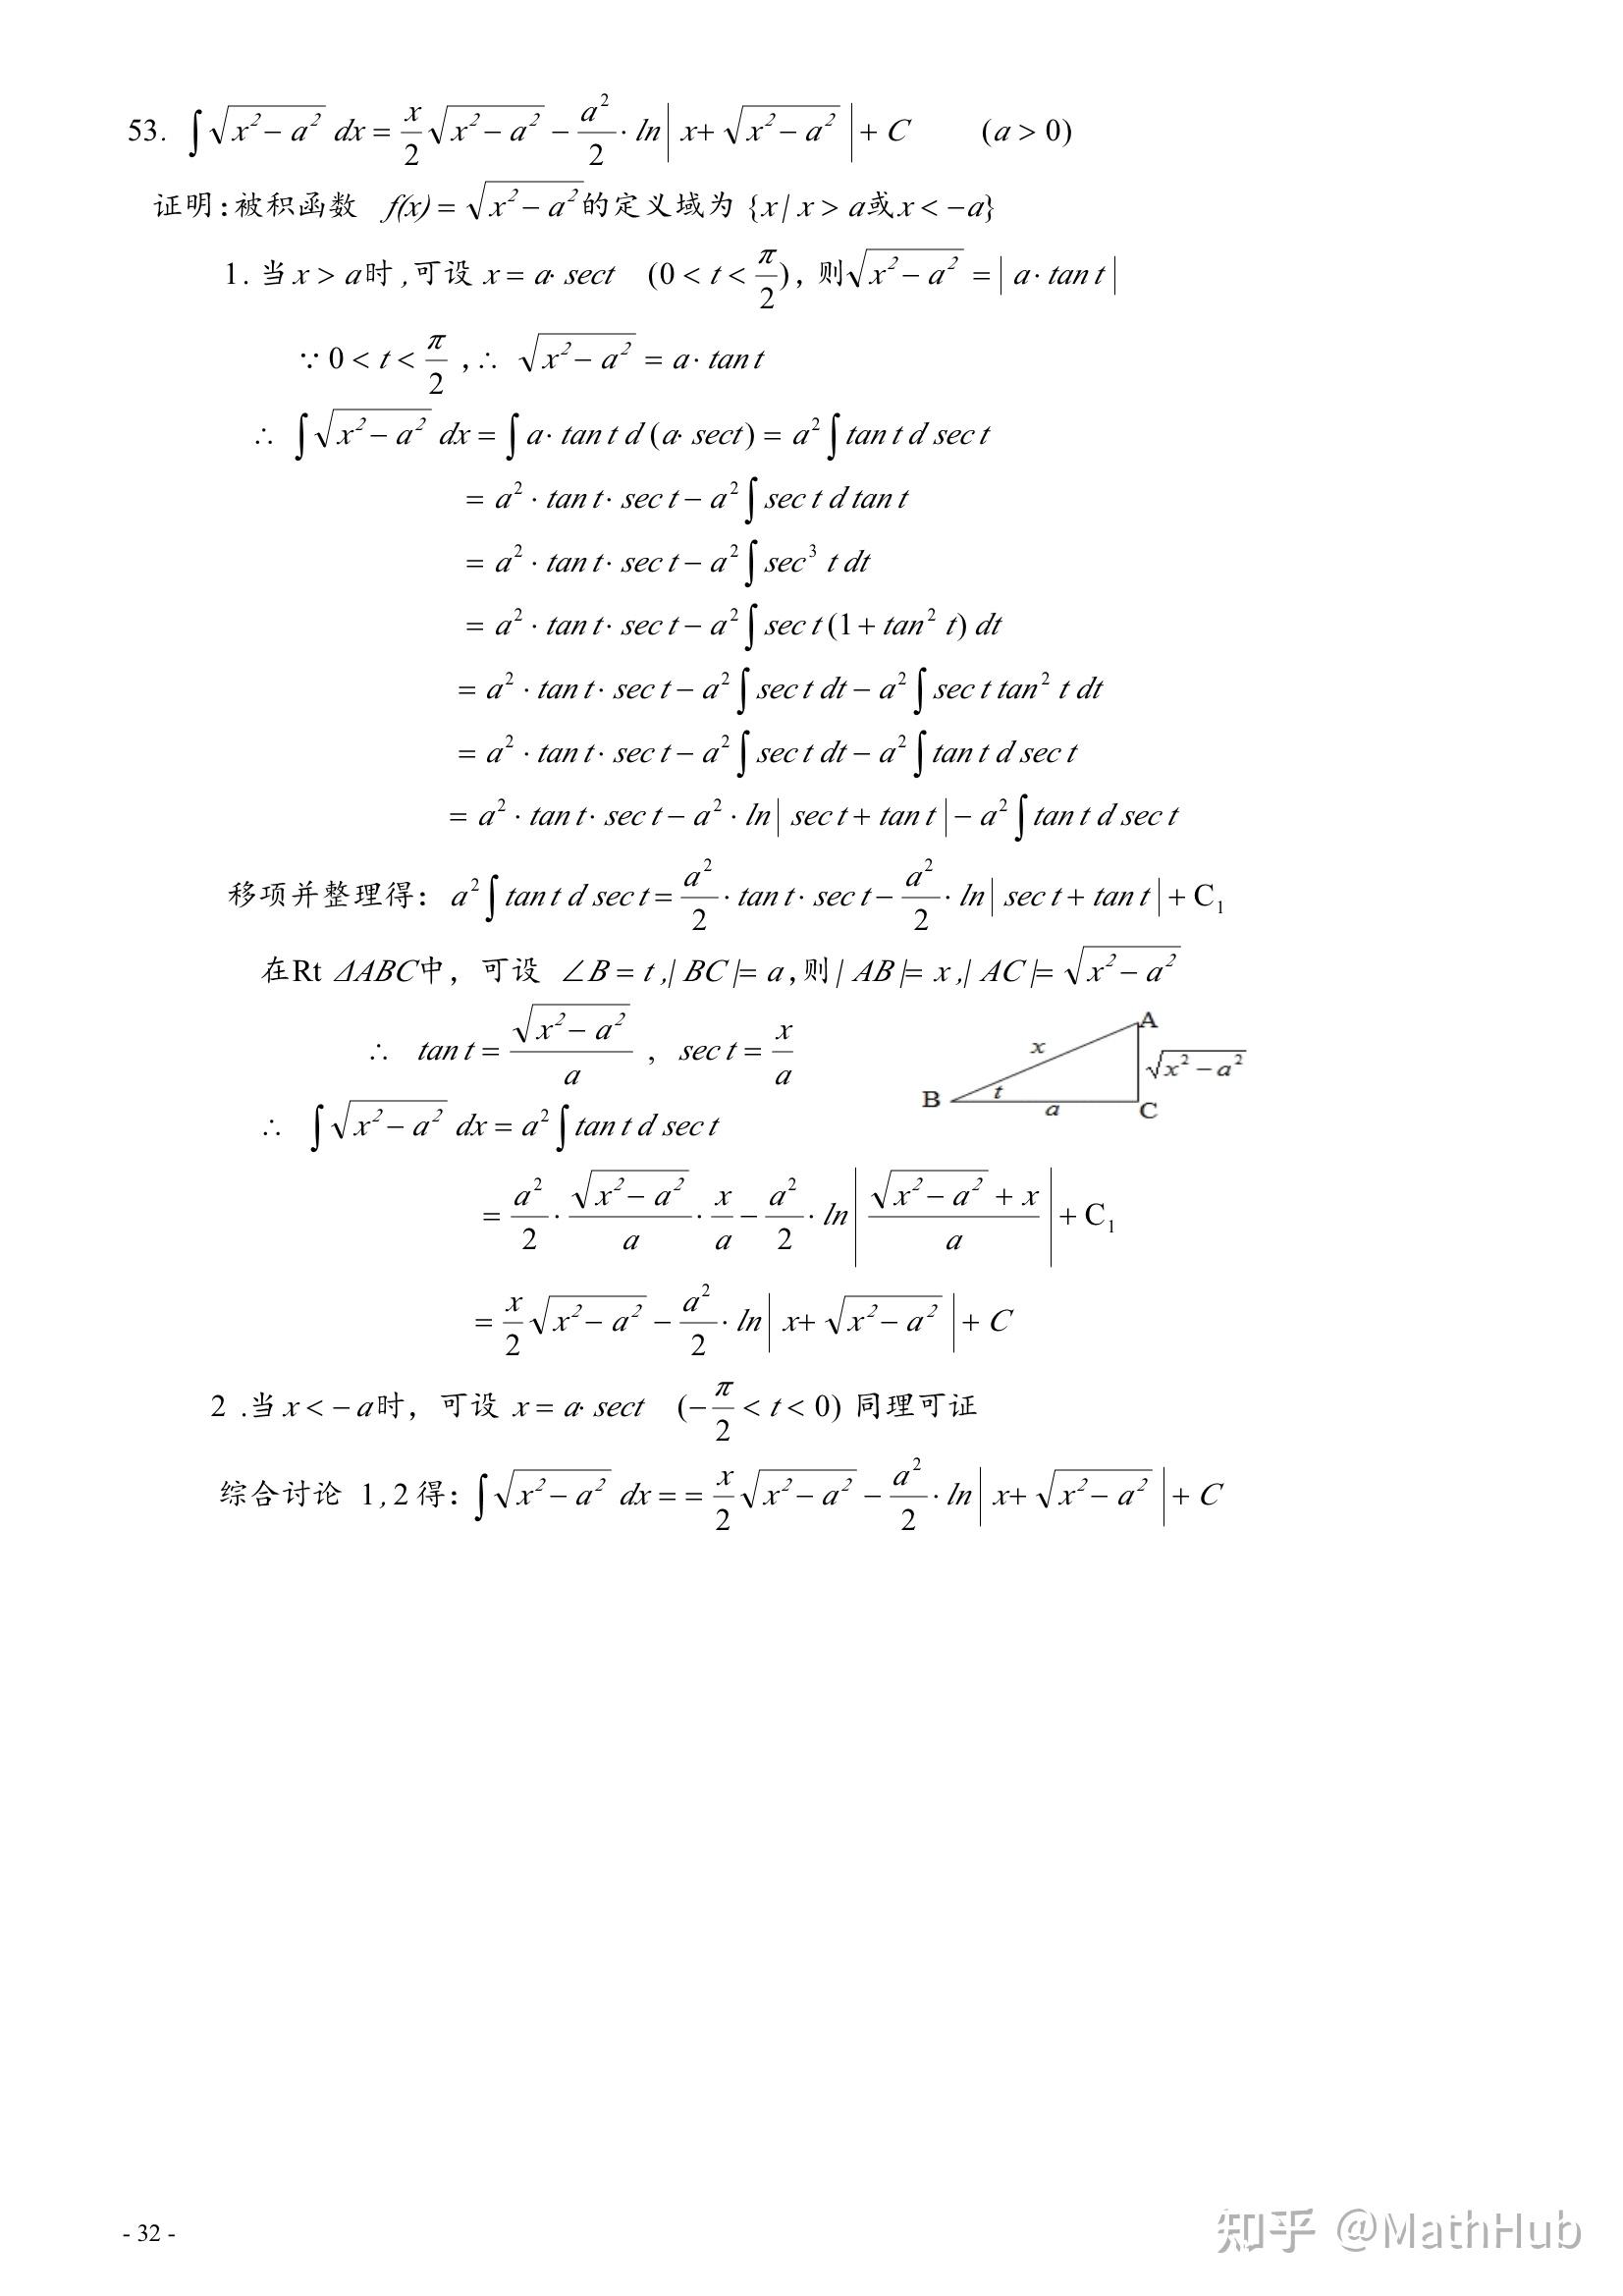 53. ∫√(x²−a²) dx = x/2 √(x²−a²) − a²/2 · ln| x+√(x²−a²) | + C (a > 0)
证明:被积函数 f(x) = √(x²−a²)的定义域为 {x | x > a或x < −a}
1. 当x > a时,可设 x = a· sect (0 < t < π/2), 则√(x²−a²) = | a· tan t |
∵ 0 < t < π/2 ,∴ √(x²−a²) = a· tan t
∴ ∫√(x²−a²) dx = ∫a· tan t d (a· sect) = a²∫tan t d sec t
= a² · tan t· sec t − a²∫sec t d tan t
= a² · tan t· sec t − a²∫sec³ t dt
= a² · tan t· sec t − a²∫sec t (1 + tan² t) dt
= a² · tan t· sec t − a²∫sec t dt − a²∫sec t tan² t dt
= a² · tan t· sec t − a²∫sec t dt − a²∫tan t d sec t
= a² · tan t· sec t − a² · ln| sec t + tan t | − a²∫tan t d sec t
移项并整理得: a²∫tan t d sec t = a²/2 · tan t· sec t − a²/2 · ln| sec t + tan t | + C₁
在Rt ΔABC中, 可设 ∠B = t ,| BC |= a ,则| AB |= x ,| AC |= √(x²−a²)
∴ tan t = √(x²−a²)/a , sec t = x/a
A
x
√(x²−a²)
B
t
a
C
∴ ∫√(x²−a²) dx = a²∫tan t d sec t
= a²/2 · √(x²−a²)/a · x/a − a²/2 · ln| (√(x²−a²) + x)/a | + C₁
= x/2 √(x²−a²) − a²/2 · ln| x+√(x²−a²) | + C
2 .当x < −a时, 可设 x = a· sect (−π/2 < t < 0) 同理可证
综合讨论 1,2得: ∫√(x²−a²) dx = = x/2 √(x²−a²) − a²/2 · ln| x+√(x²−a²) | + C
- 32 -
知乎 @MathHub